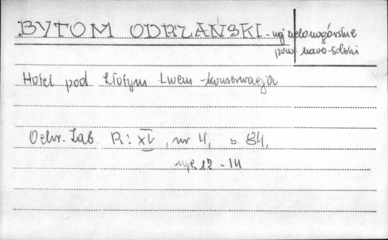 BYTOM ODRZAŃSKI - woj zielonogórskie
pow. nowo-solski
Hotel pod Złotym Lwem - konserwacja
Ochr. Zab. R: XV, nr 4, s 84,
ryc 12 - 14